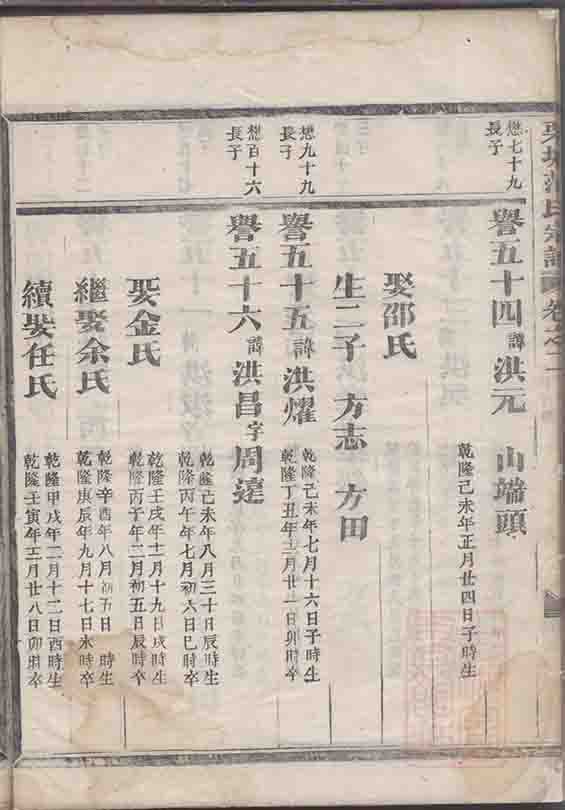 氏宗譜 卷之二
懋七十九
長子
譽五十四 諱 洪元 山端頭
乾隆己未年正月廿四日子時生
娶邵氏
生二子 方志 方田
懋九十九
長子
譽五十五 諱 洪燿
乾隆己未年七月十六日子時生
乾隆丁丑年三月廿二日卯時卒
懋百十六
長子
譽五十六 諱 洪昌 字 周達
乾隆己未年八月三十日辰時生
乾隆丙午年七月初六日巳時卒
娶金氏
乾隆壬戌年十一月十九日戌時生
乾隆丙子年二月初五日辰時卒
繼娶余氏
乾隆辛酉年八月初五日 時生
乾隆庚辰年九月十七日亥時卒
續娶任氏
乾隆甲戌年二月十二日酉時生
乾隆壬寅年三月廿八日卯時卒